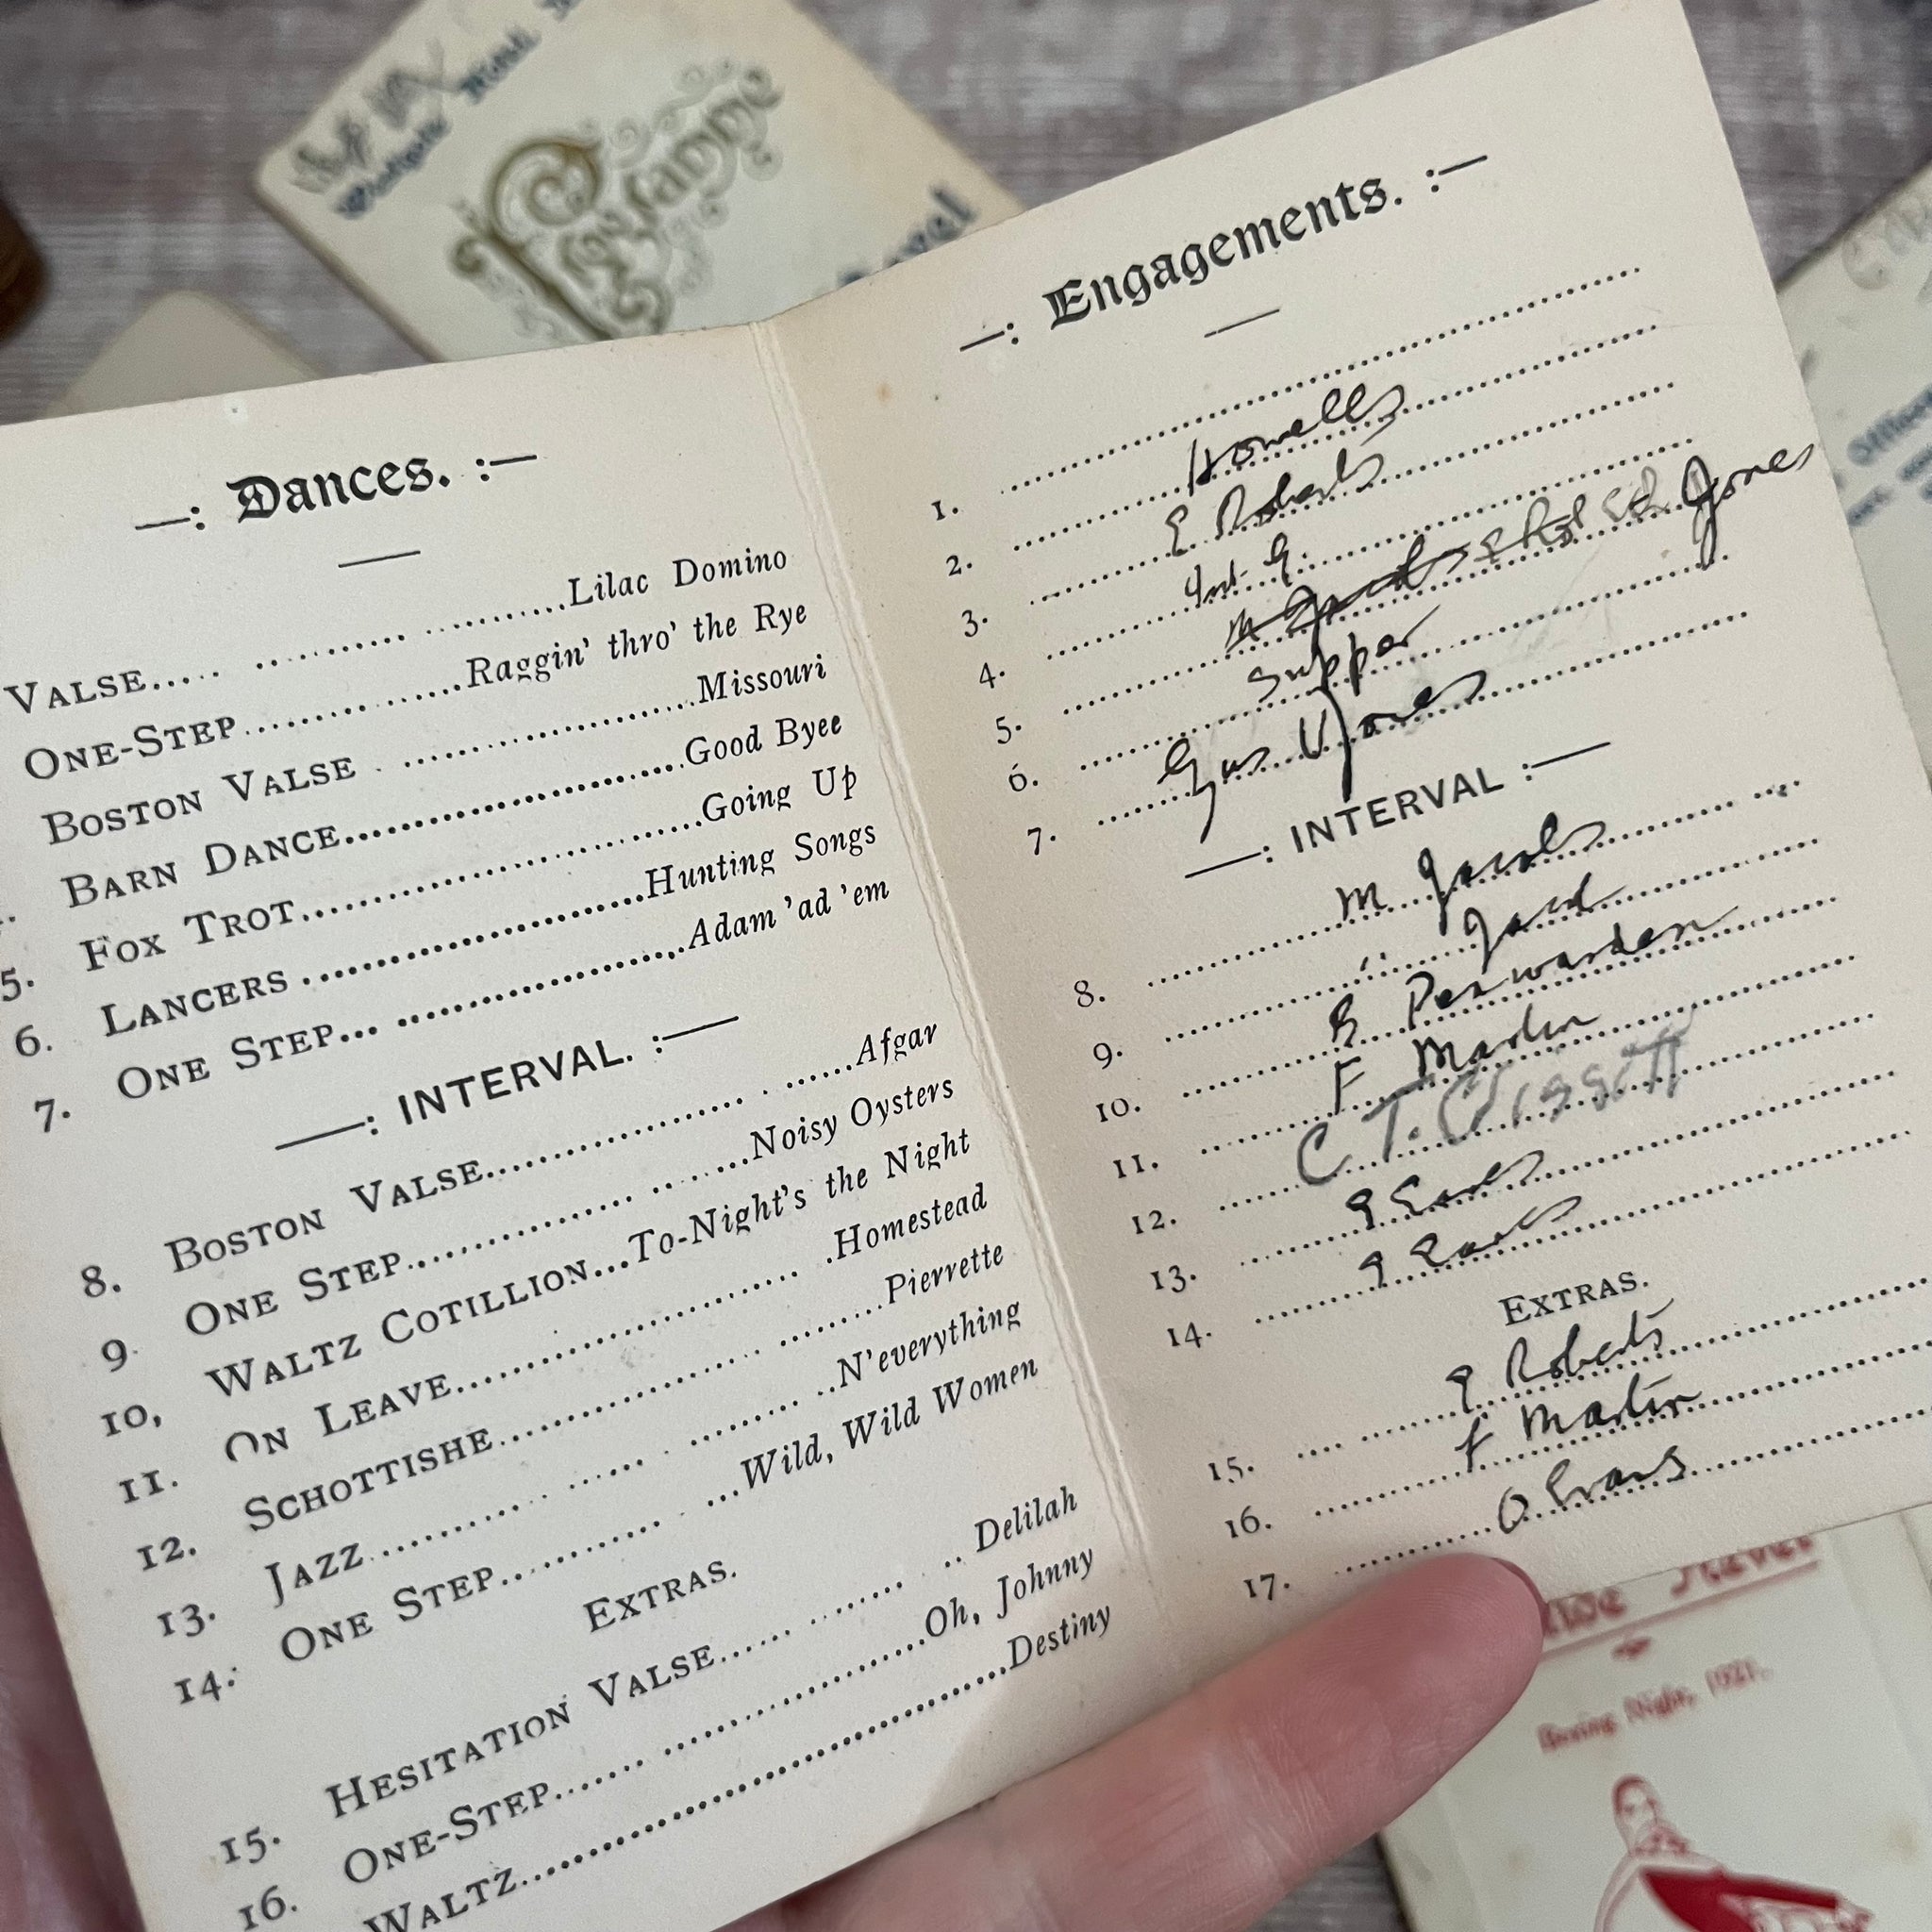 Programme
—: Dances. :—
VALSE..... Lilac Domino
ONE-STEP..... Raggin' thro' the Rye
BOSTON VALSE..... Missouri
BARN DANCE..... Good Byee
5. FOX TROT..... Going Up
6. LANCERS..... Hunting Songs
7. ONE STEP..... Adam 'ad 'em
—: INTERVAL. :—
8. BOSTON VALSE..... Afgar
9. ONE STEP..... Noisy Oysters
10, WALTZ COTILLION...To-Night's the Night
11. ON LEAVE..... Homestead
12. SCHOTTISHE..... Pierrette
13. JAZZ..... N'everything
14. ONE STEP..... Wild, Wild Women
EXTRAS.
15. HESITATION VALSE..... Delilah
16. ONE-STEP..... Oh, Johnny
WALTZ..... Destiny
—: Engagements. :—
1.
2. Howells
3. E Roberts
4. Int. G.
5. M Jacobs Jones
6. Supper
7. Gus Jones
—: INTERVAL :—
8. M Jacobs
9. " Jacob
10. B Penwarden
11. F Martin
12. C T.
13. G Evans
14. G Evans
EXTRAS.
15. G Roberts
16. F Martin
17. O. Evans
Boxing Night, 1921.